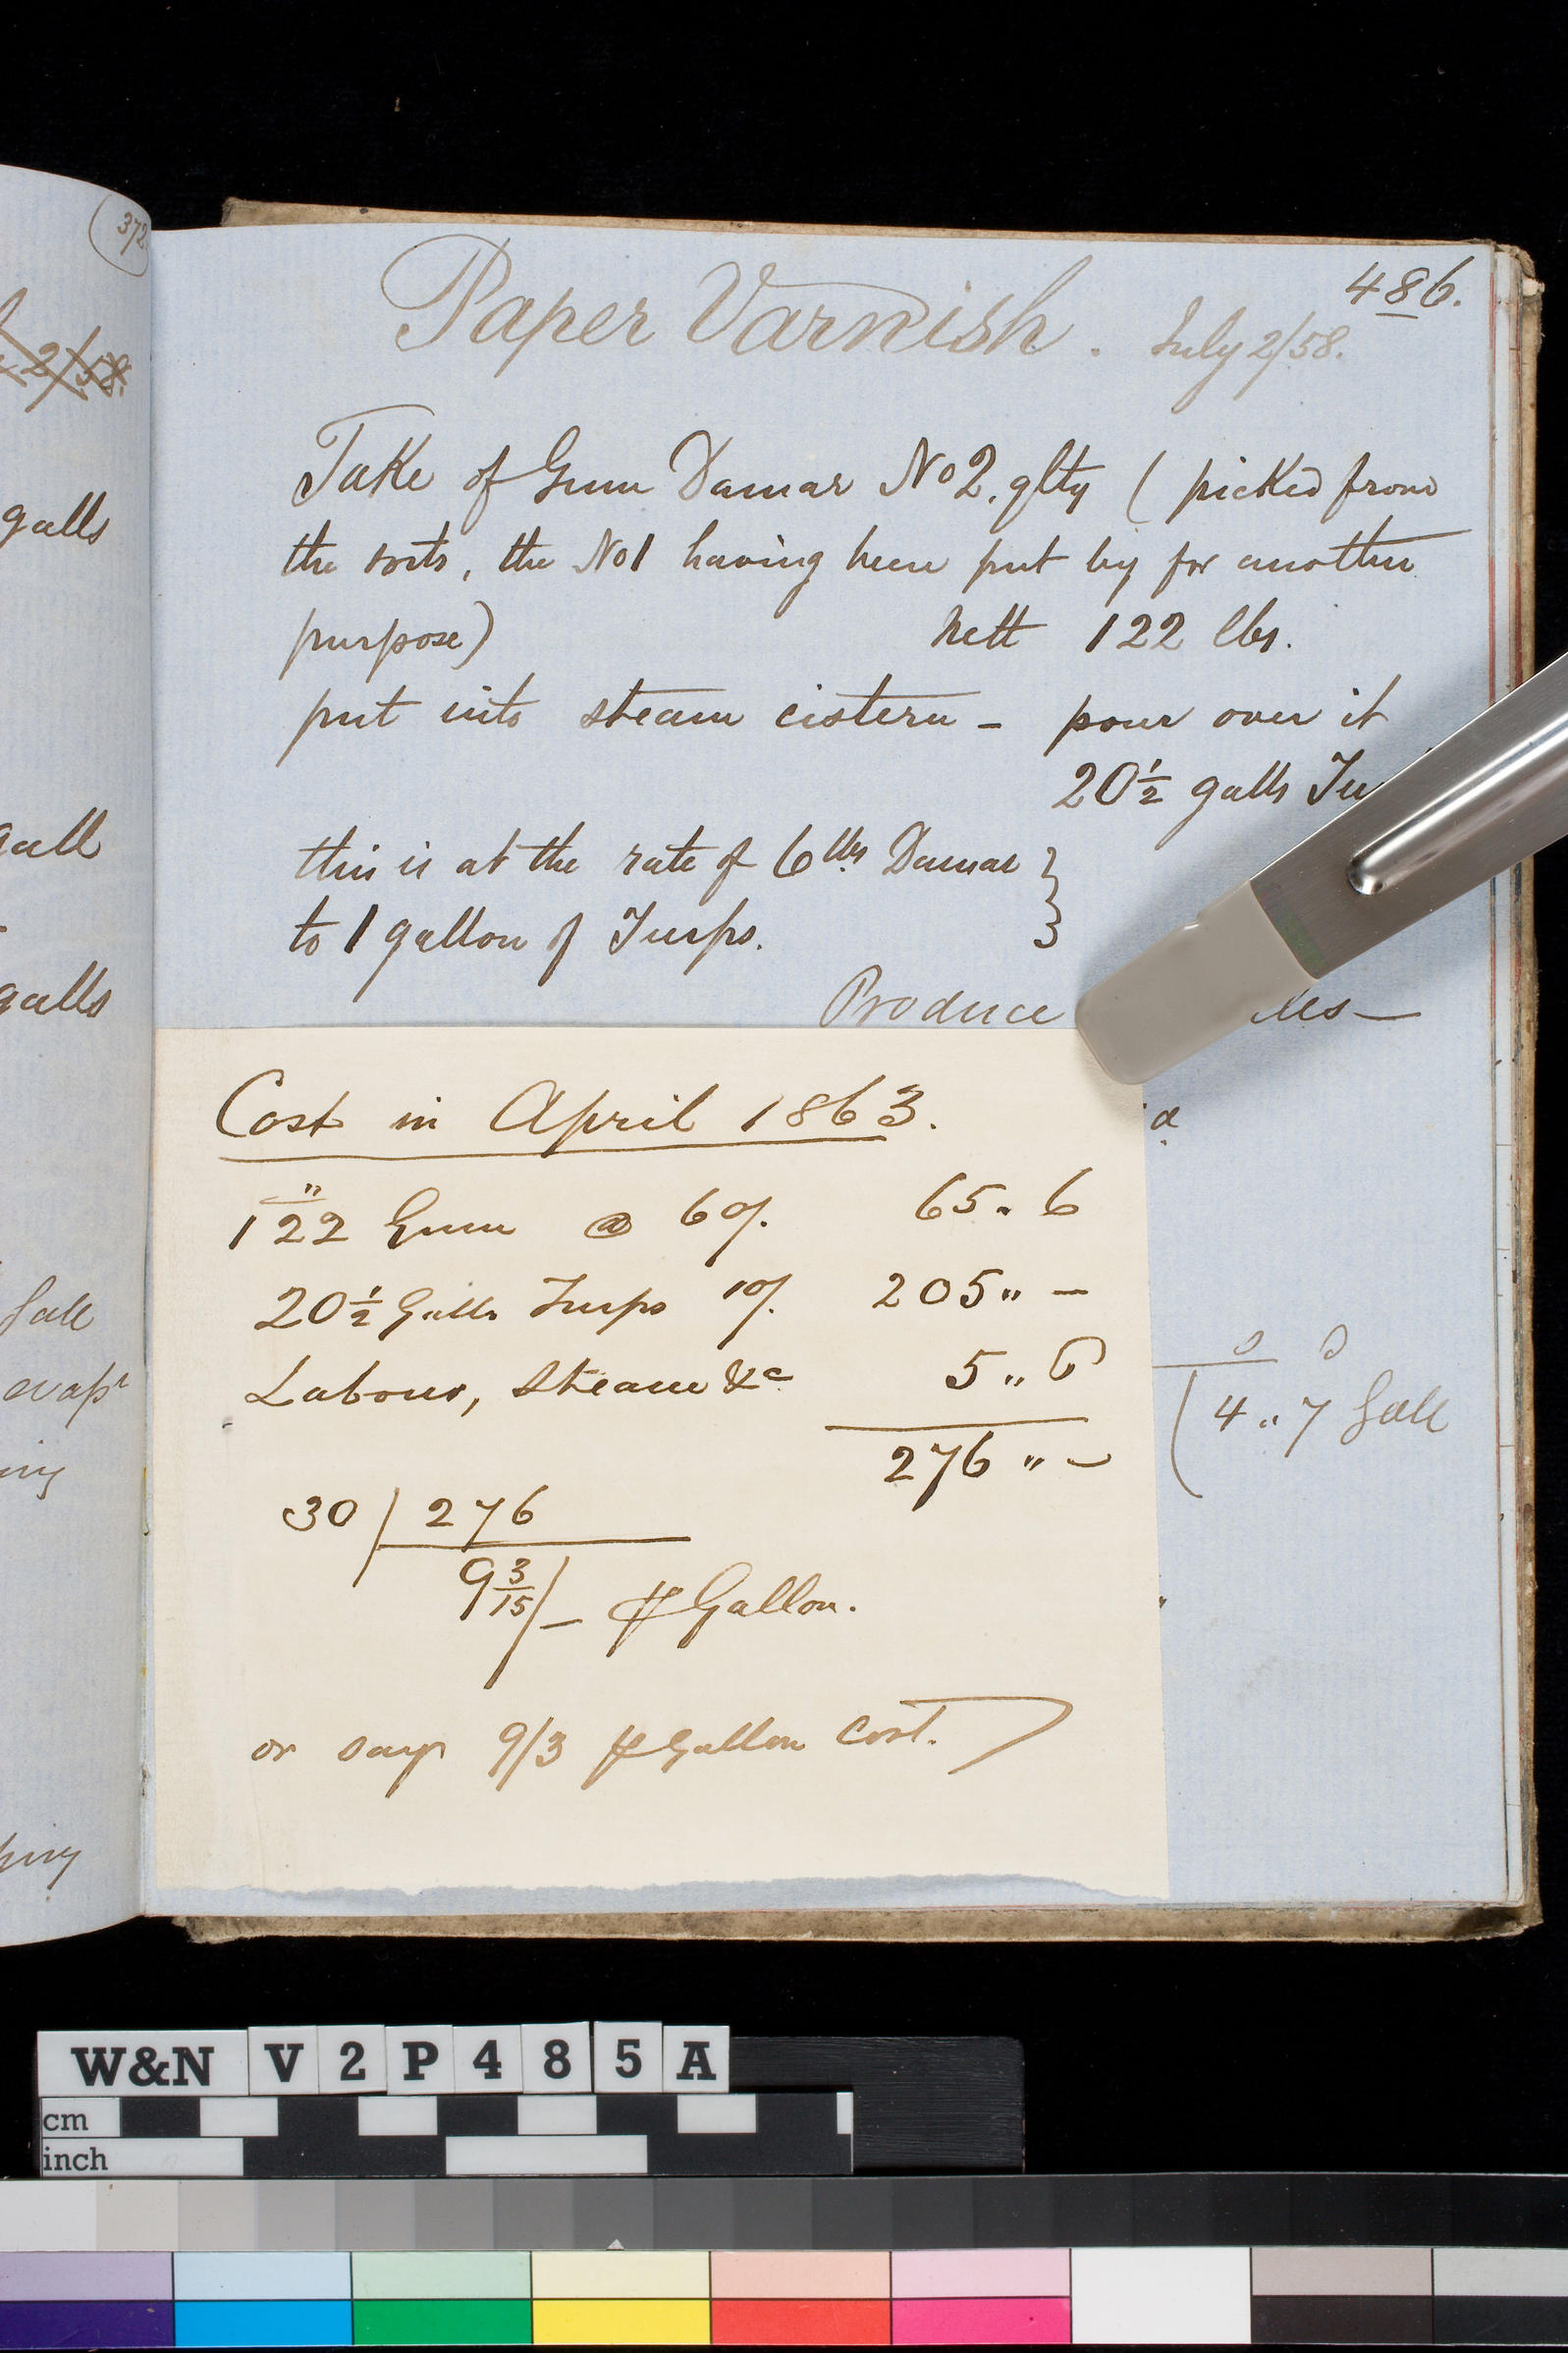 372
486.
Paper Varnish. July 2/58.
Take of Gum Damar No 2. qlty ( picked from
the sorts, the No 1 having been put by for another
purpose) nett 122 lbs.
put into steam cistern – pour over it
20½ galls
this is at the rate of 6 lbs. Damar }
to 1 gallon of Turps.
Produce
Cost in April 1863.
122 Gum @ 60/. 65 " 6
20½ Galls Turps 10/. 205 " –
Labour, Steam &c 5 " 6
276 " –
30 / 276
9 3/15 / – ⅌ Gallon.
or say 9/3 ⅌ Gallon cost.
d
4 " 7 Gall
2/58.
galls
gall
galls
Gall
evapr
W&N V2P485A
cm
inch